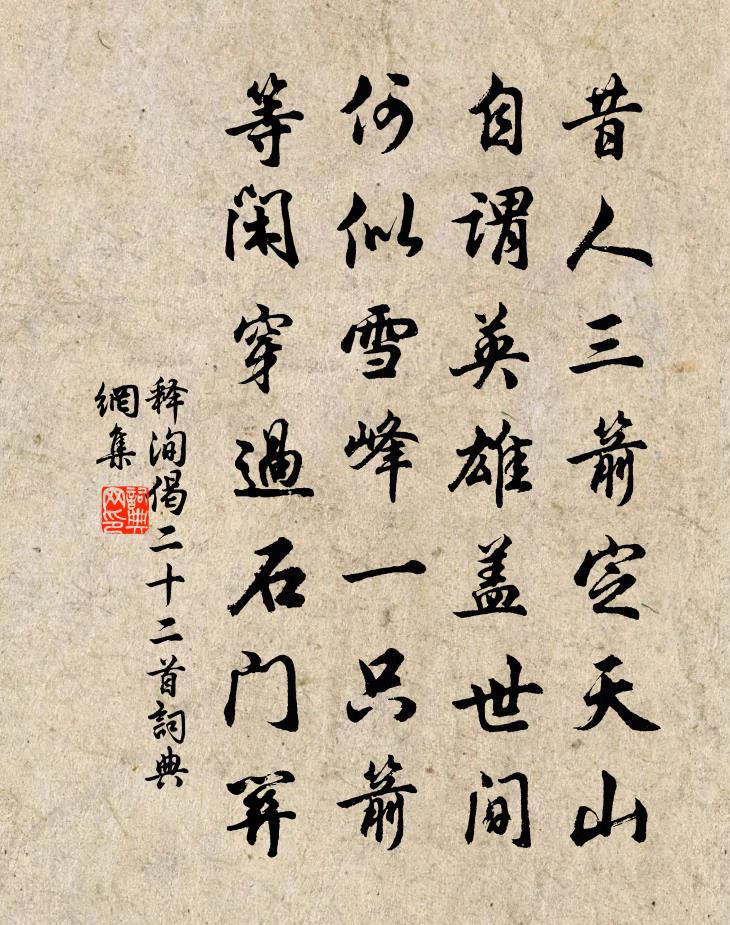 昔人三箭定天山
自謂英雄盖世间
何似雪峰一只箭
等闲穿過石门關
释洵偈二十二首詞典
網集
詞典
网印